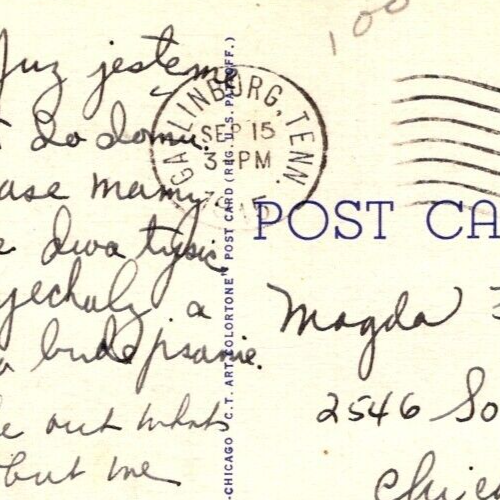 Już jesteśmy
do domu.
mamy
dwa tysic
jechaly a
bude psanie.
out whats
but me
GATLINBURG, TENN.
SEP 15
3 PM
-CHICAGO C.T. ART-COLORTONE" POST CARD (REG. U.S. PAT. OFF.)
POST CA
Magda
2546 So
Chic
100